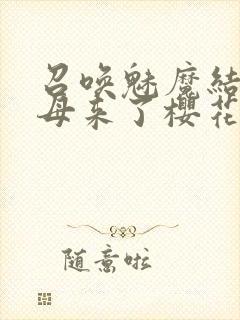 召唤魅魔结
母来了樱花
随意啦